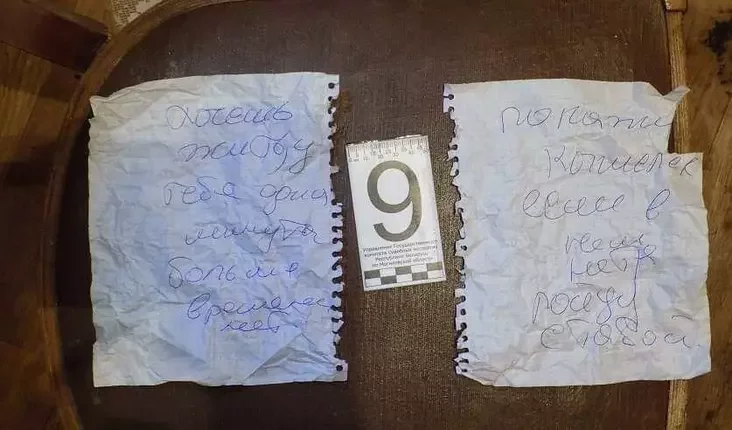 хочешь
жить у
тебя одна
минута
больше
времени
нет
9
Управление Государственного
комитета судебных экспертиз
Республики Беларусь
по Могилевской области
покажи
кошелек
если в
нет
пойду
с тобой.